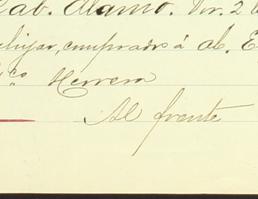 Cab. Alamo. Vor. 2 a
ahijar, comprados á Ab. E
co Herrera
Al frente